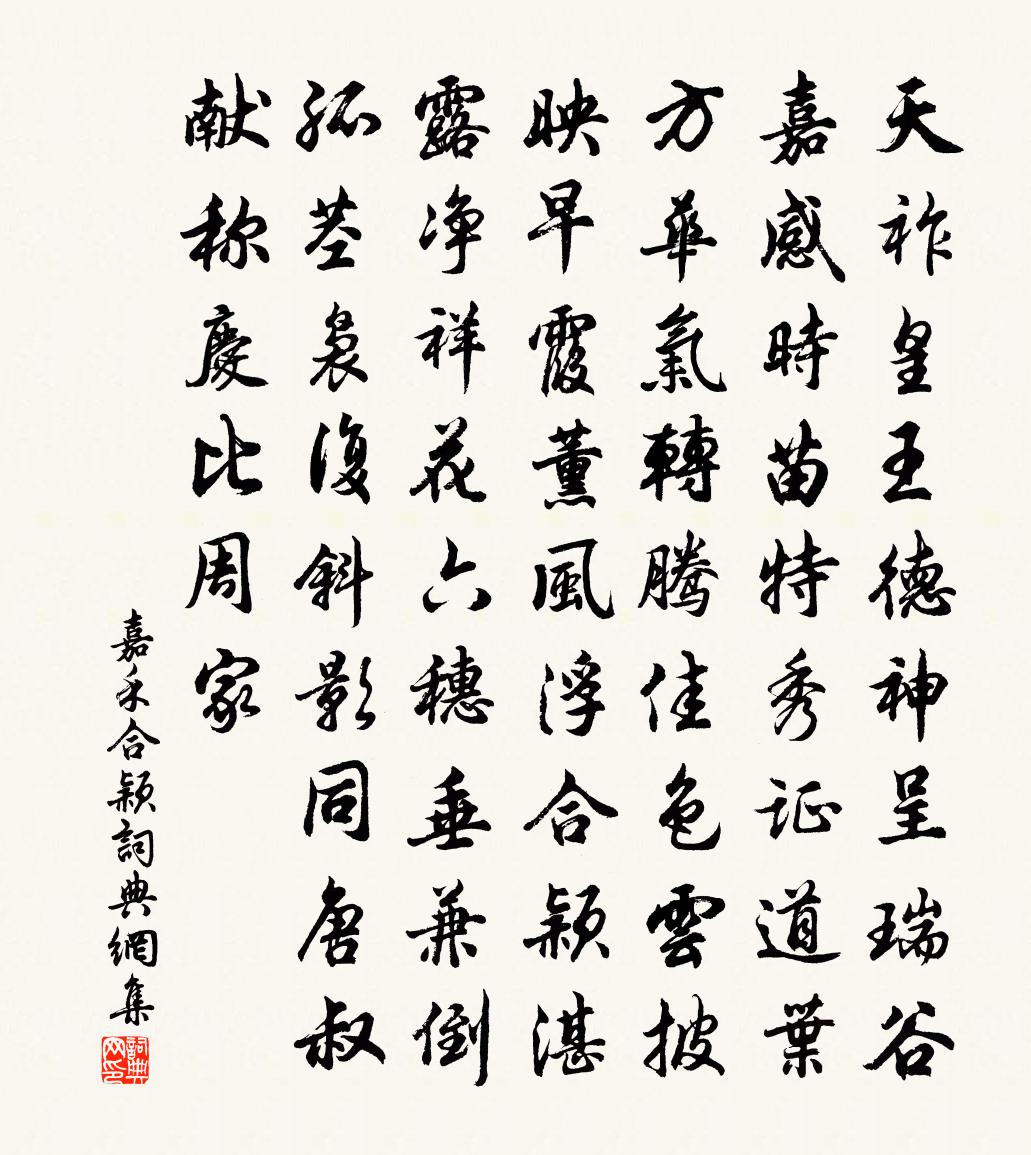 天祚皇王德神呈瑞谷
嘉感時苗特秀证道葉
方華氣轉騰佳色雲披
映早霞薰風浮合颖湛
露净祥花六穗垂兼倒
孤茎裊復斜影同唐叔
献称慶比周家
嘉禾合颖詞典網集
詞典网印